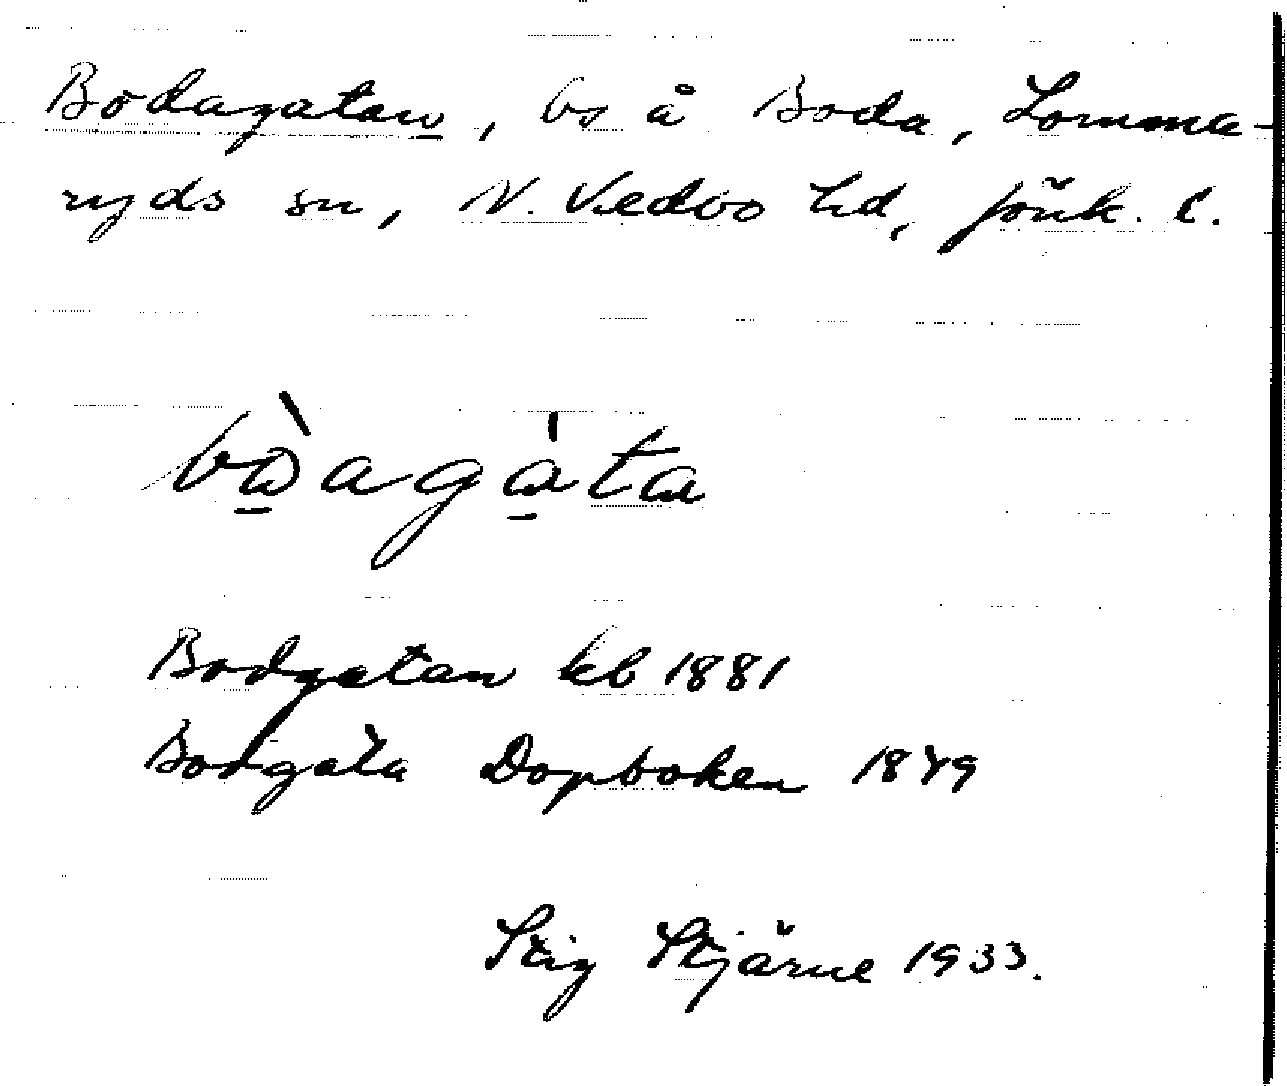 Bodagatan, bs å Boda, Lomma-
ryds sn, N. Vedbo hd, Jönk. l.
bò̱aga̱̍ta
Bodgatan kb 1881
Bodgata Dopboken 1879
Stig Stjärne 1933.